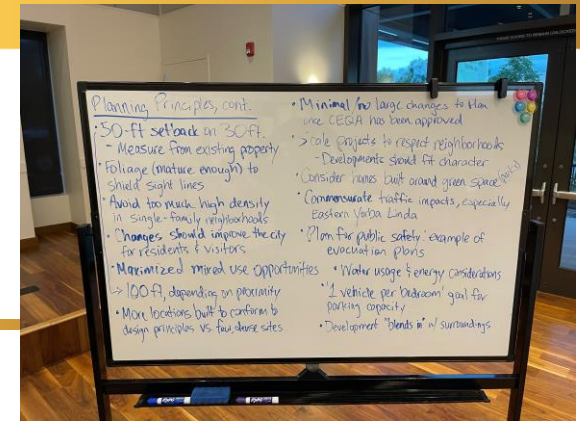 Planning Principles, cont.
• 50-ft setback on 30-ft.
- Measure from existing property
• Foliage (mature enough) to
shield sight lines
• Avoid too much high density
in single-family neighborhoods
• Changes should improve the city
for residents & visitors
• Maximized mixed use opportunities
→ 100ft, depending on proximity
• More locations built to conform to
design principles vs. few, dense sites
• Minimal/no large changes to plan
once CEQA has been approved
• Scale projects to respect neighborhoods
- Developments should fit character
• Consider homes built around green space (parks)
• Commensurate traffic impacts, especially
Eastern Yorba Linda
• Plan for public safety: example of
evacuation plans
• Water usage & energy considerations
• '1 vehicle per bedroom' goal for
parking capacity
• Development "blends in" w/ surroundings
EXPO
EXPO